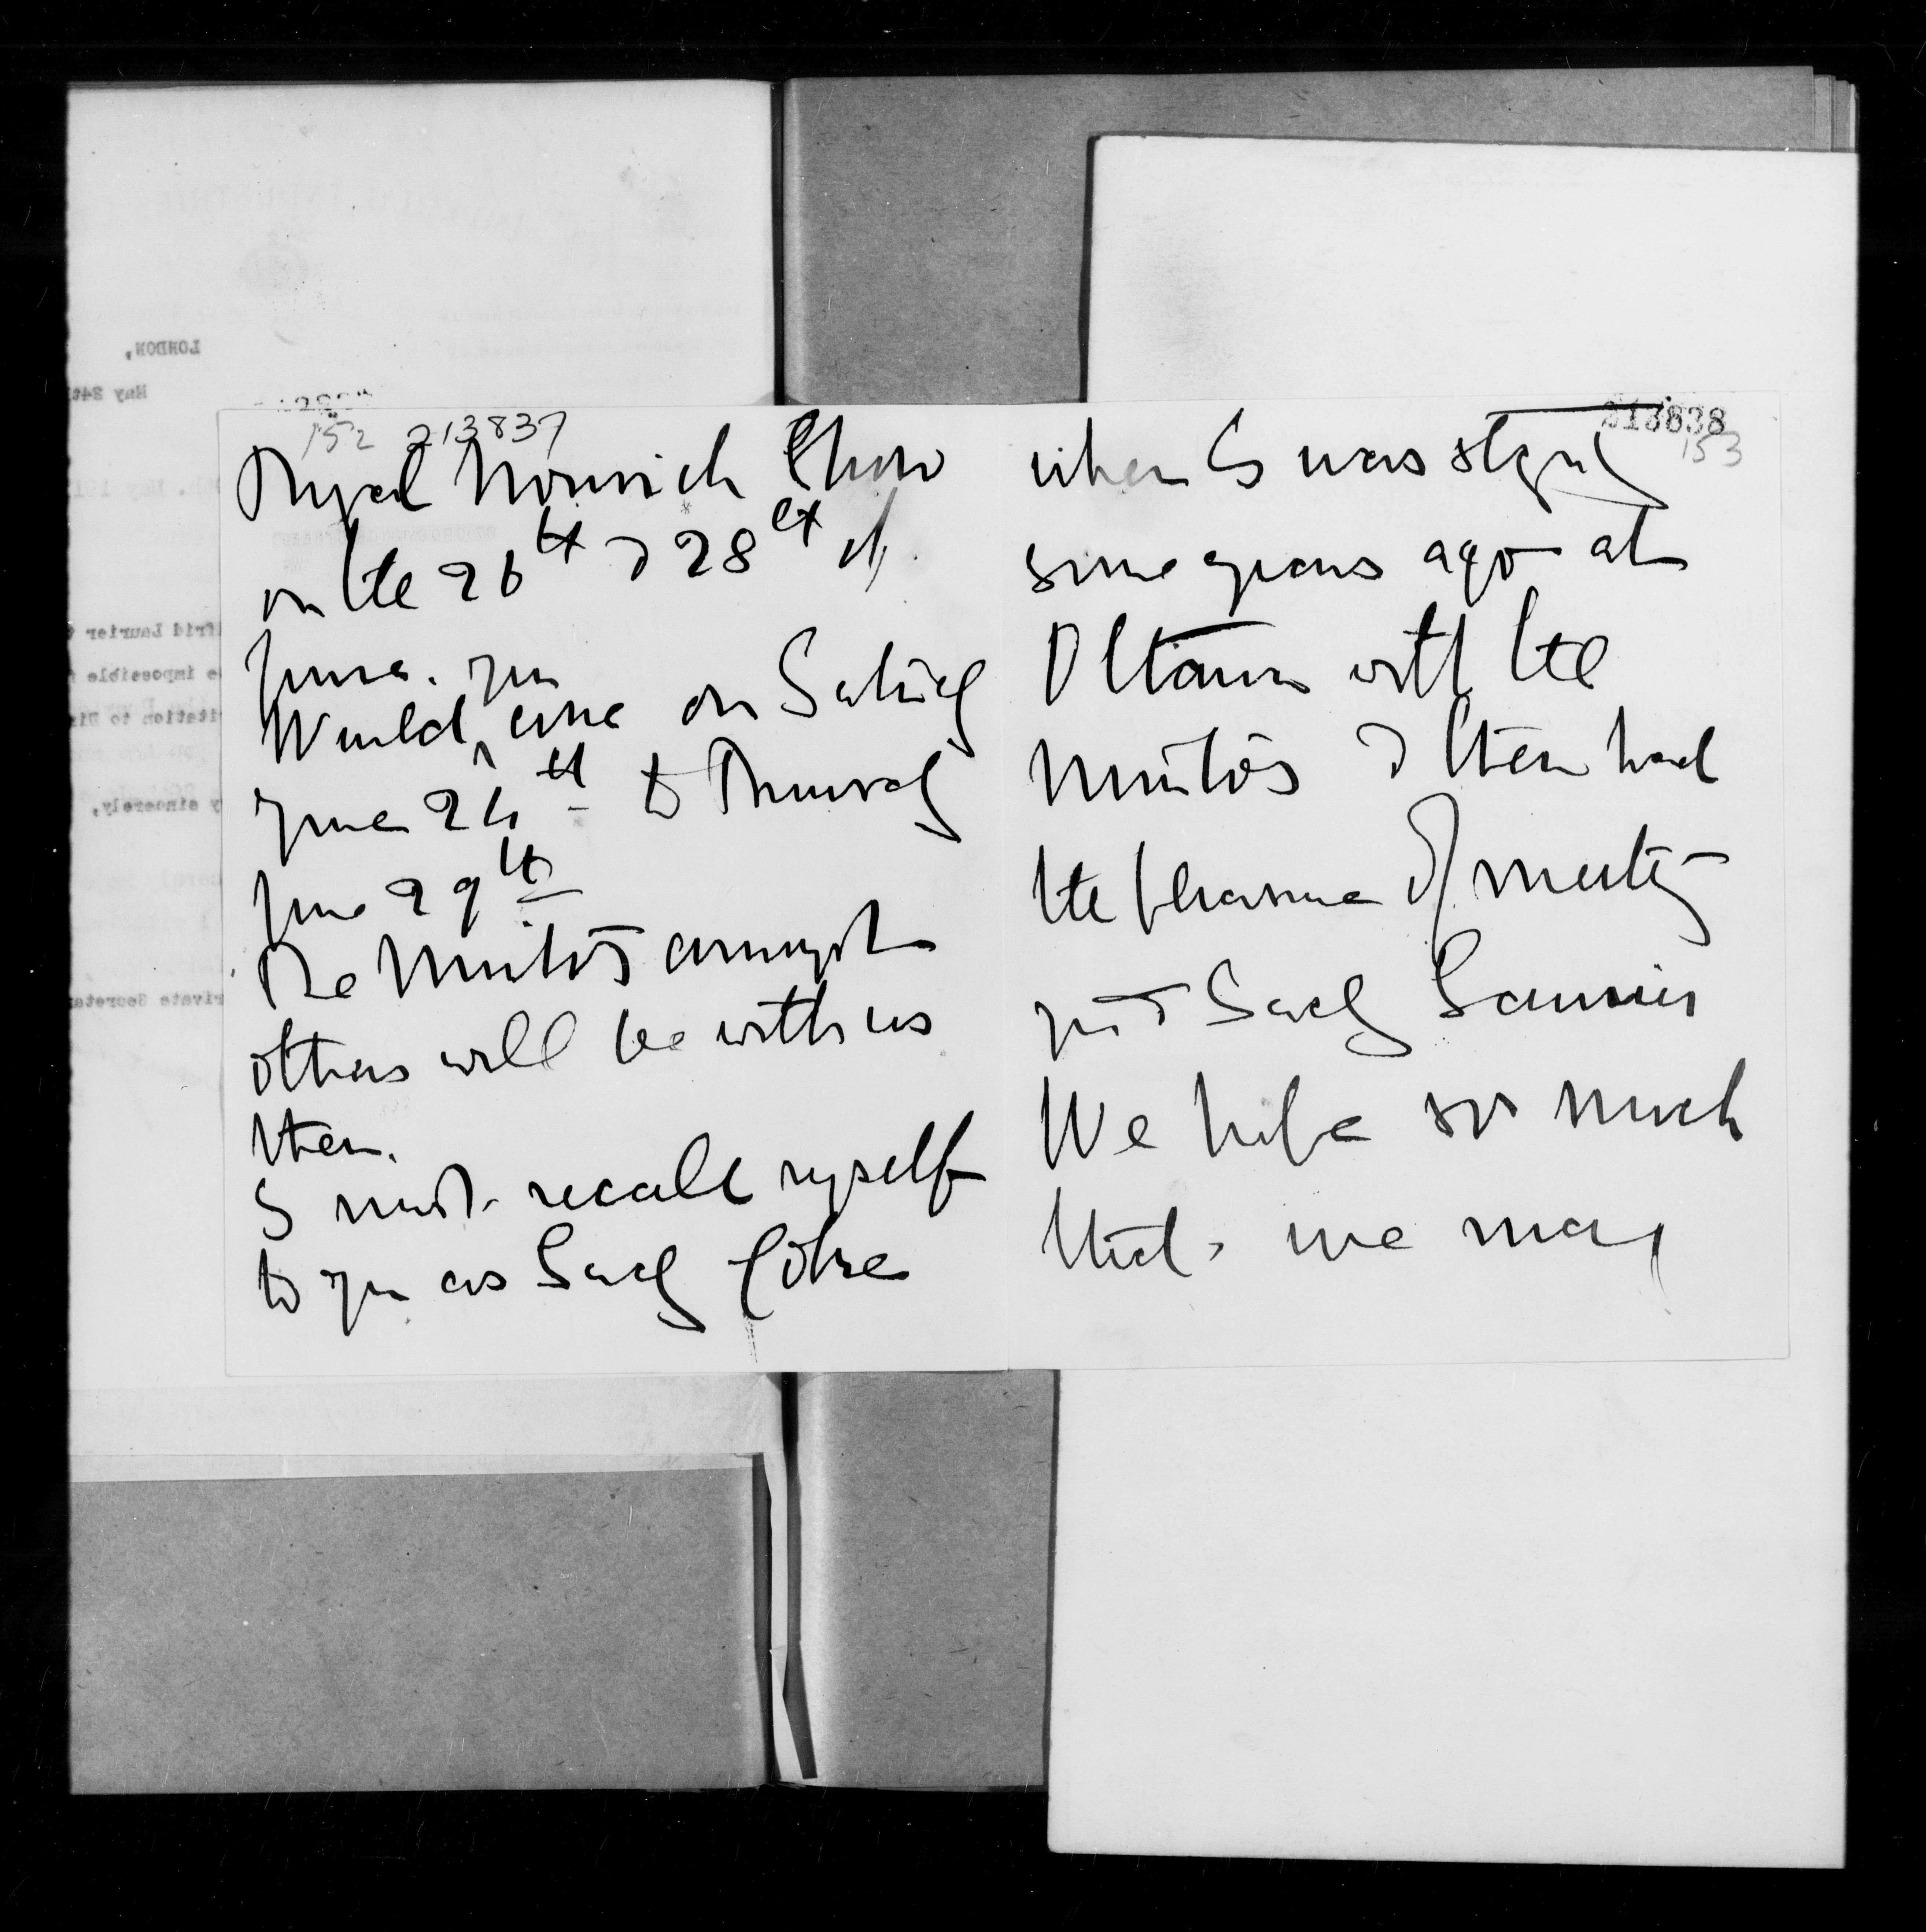 152 213837
Royal Norwich Show
on the 26th & 28th of
June. you
Would come on Saturday
June 24th to Thursday
June 29th
The Mintos amongst
others will be with us
then.
I must recall myself
to you as Lady
when I was staying
some years ago at
Ottawa with the
Mintos & then had
the pleasure of meeting
you & Lady Laurier
We hope so much
that we may
213838
153
LONDON,
May 24t
lfrid Laurier
be impossible
itation to
y sincerely,
rivate Secreta